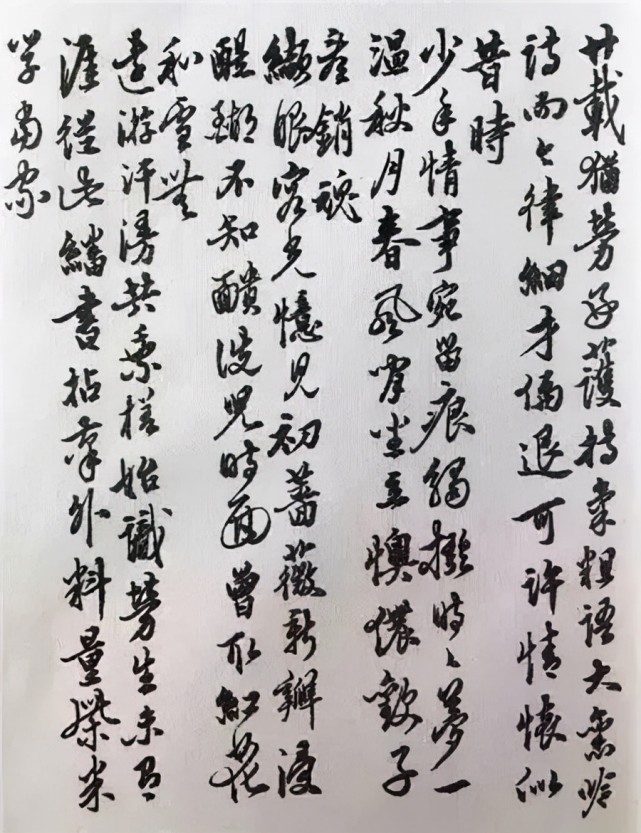 廿載猶勞好護持氣粗語大舊吟
詩而今律細才偏退可許情懷似
昔時
少年情事宛留痕觸撥時々夢一
溫秋月春風閒坐立懊儂歡子
銷魂
纈眼容光憶見初薔薇新瓣浸
醍醐不知靧洗兒時面曾取紅花
和雪無
遠游汗漫共乘槎始識勞生未有
涯從此繙書拈筆外料量柴米
學當家